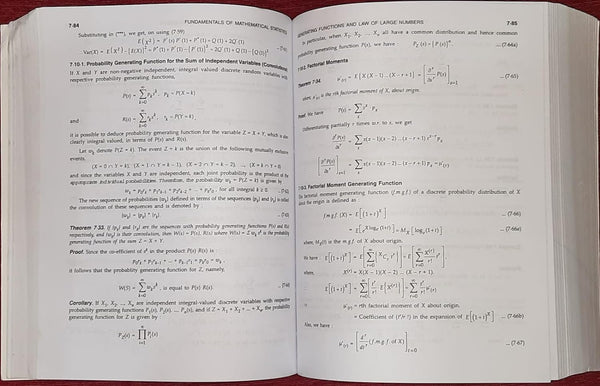 7-84 FUNDAMENTALS OF MATHEMATICAL STATISTICS
Substituting in (**), we get, on using (7·59)
E(X²) = P''(s) P'(1) + P''(1) + Q(1) + 2Q'(1)
Var(X) = E(X²) - [E(X)]² = P''(1) + P'(1) - [P'(1)]² = 2Q'(1) + Q(1) - [Q(1)]².
7·10·1. Probability Generating Function for the Sum of Independent Variables (Convolutions)
If X and Y are non-negative independent, integral valued discrete random variables with
respective probability generating functions,
P(s) = ∑ p_k s^k, p_k = P(X = k)
and R(s) = ∑ r_k s^k, r_k = P(Y = k),
it is possible to deduce probability generating function for the variable Z = X + Y, which is also
clearly integral valued, in terms of P(s) and R(s).
Let w_k denote P(Z = k). The event Z = k is the union of the following mutually exclusive
events,
(X = 0 ∩ Y = k), (X = 1 ∩ Y = k - 1), (X = 2 ∩ Y = k - 2), ..., (X = k ∩ Y = 0)
and since the variables X and Y are independent, each joint probability is the product of the
appropriate individual probabilities. Therefore, the probability w_k = P(Z = k) is given by
w_k = p_0 r_k + p_1 r_{k-1} + p_2 r_{k-2} + ... + p_k r_0, for all integral k ≥ 0.
The new sequence of probabilities {w_k} defined in terms of the sequences {p_k} and {r_k} is called
the convolution of these sequences and is denoted by
{w_k} = {p_k} * {r_k}.
Theorem 7·33. If {p_k} and {r_k} are the sequences with probability generating functions P(s) and R(s)
respectively, and {w_k} is their convolution, then W(s) = P(s). R(s) where W(s) = ∑ w_k s^k is the probability
generating function of the sum Z = X + Y.
Proof. Since the co-efficient of s^k in the product P(s) R(s) is :
p_0 r_k + p_1 r_{k-1} + ... + p_{k-1} r_1 + p_k r_0 = w_k,
it follows that the probability generating function for Z, namely,
W(S) = ∑ w_k s^k, is equal to P(s) R(s).
Corollary. If X₁, X₂, ..., Xₙ are independent integral-valued discrete variables with respective
probability generating functions P₁(s), P₂(s), ..., Pₙ(s), and if Z = X₁ + X₂ + ... + Xₙ, the probability
generating function for Z is given by
P_Z(s) = ∏ P_i(s)
GENERATING FUNCTIONS AND LAW OF LARGE NUMBERS 7-85
In particular, when X₁, X₂, ..., Xₙ all have a common distribution and hence common
probability generating function P(s), we have P_Z(s) = [P(s)]ⁿ. ...(7·64a)
7·10·2. Factorial Moments
Theorem 7·34. μ'_(r) = E{X(X - 1)...(X - r + 1)} = [∂^r/∂s^r P(s)]_{s=1} ...(7·65)
where, μ'_(r) is the rth factorial moment of X, about origin.
Proof. We have P(s) = ∑ s^x p_x
Differentiating partially r times w.r. to s, we get
∂^r P(s)/∂s^r = ∑ x(x - 1)(x - 2)...(x - r + 1) s^{x-r} p_x
[∂^r P(s)/∂s^r]_{s=1} = ∑ x(x - 1)(x - 2)...(x - r + 1) p_x = μ'_(r)
Factorial Moment Generating Function
factorial moment generating function (f.m.g.f.) of a discrete probability distribution of X
about the origin is defined as :
f.m.g.f. (X) = E[(1+t)^X] ...(7·66)
= E[e^{X log_e(1+t)}] = M_X[log_e(1+t)] ...(7·66a)
where, M_X(t) is the m.g.f. of X about origin.
We have : E[(1+t)^X] = E[∑ ^XC_r t^r] = E[∑ X^(r)/r! t^r]
where, X^(r) = X(X - 1)(X - 2)...(X - r + 1).
E[(1+t)^X] = ∑ [t^r/r! E{X^(r)}] = ∑ t^r/r! μ'_(r)
μ'_(r) = rth factorial moment of X about origin,
= Coefficient of (t^r/r!) in the expansion of E[(1+t)^X] ...(7·66b)
Also, we have :
μ'_(r) = [d^r/dt^r (f.m.g.f. of X)]_{t=0} ...(7·67)